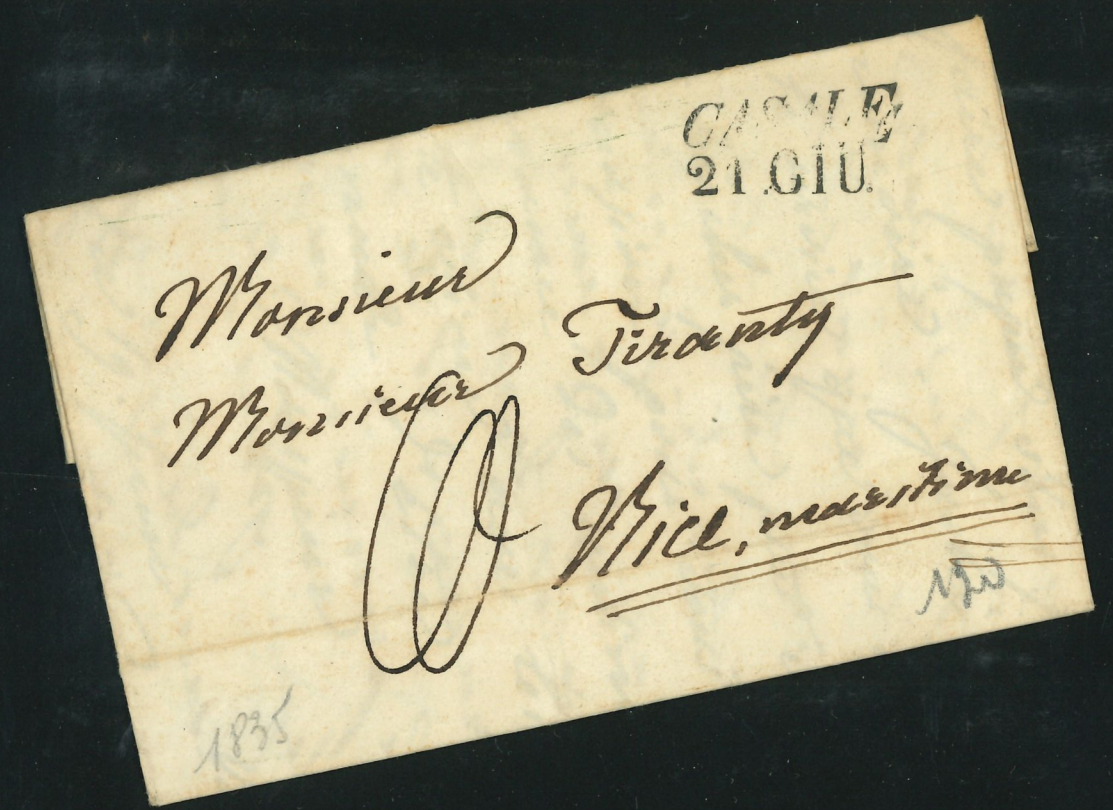 CASALE
21 .GIU.
Monsieur
Monsieur Tiranty
Nice, maritime
1835